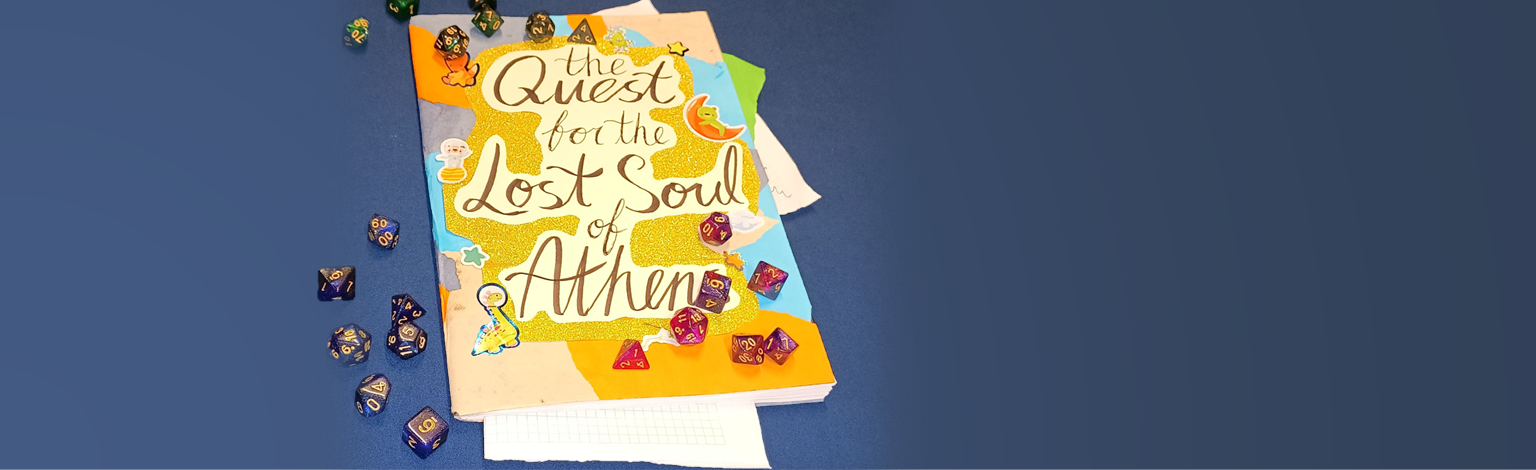 the
Quest
for the
Lost Soul
of